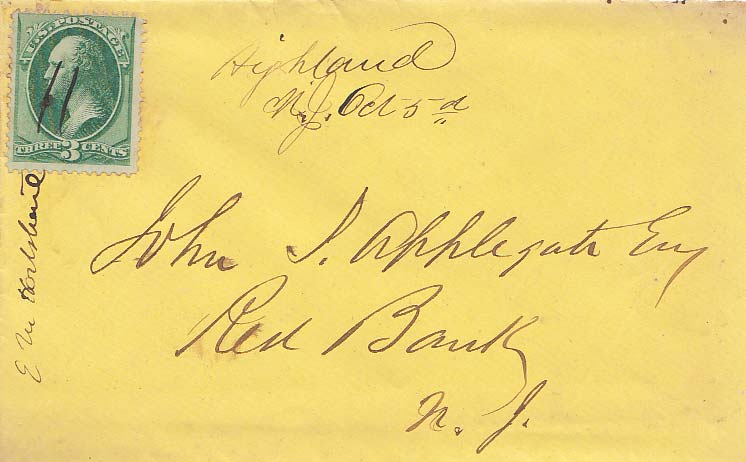 U.S. POSTAGE
THREE 3 CENTS
Highland
N.J. Oct 5d
John S. Applegate Esq
Red Bank
N. J.
E W